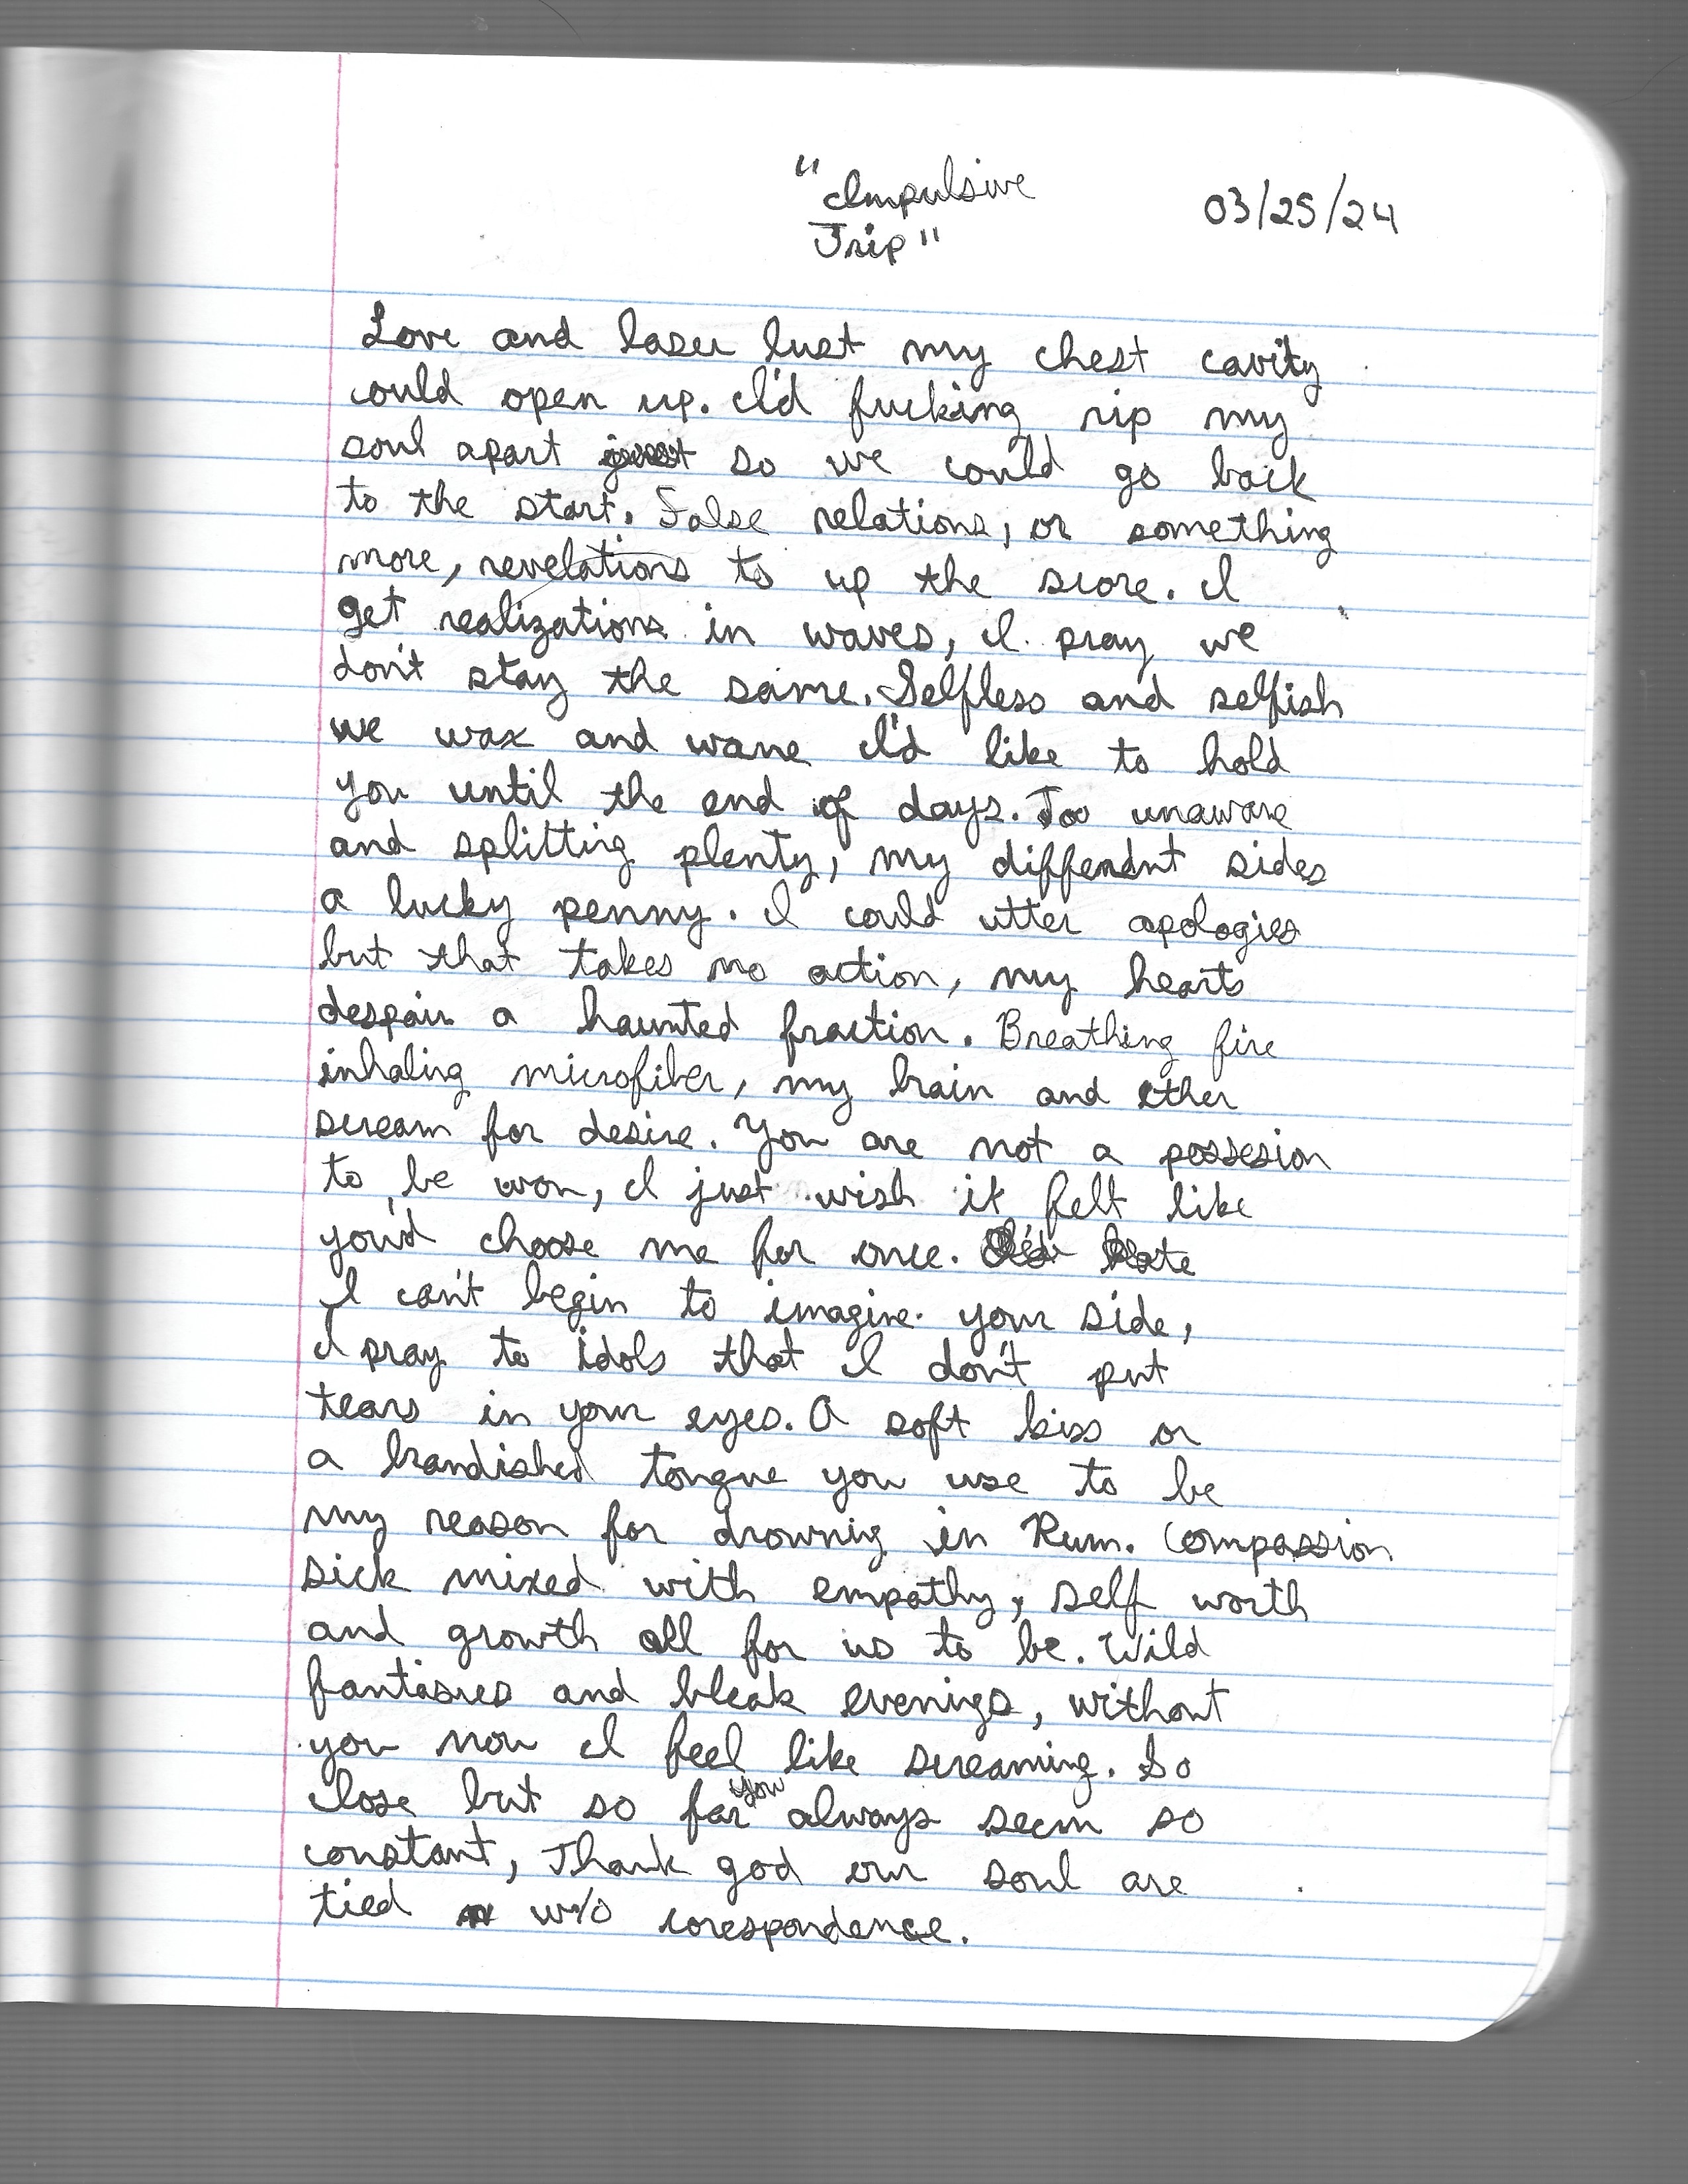 "Impulsive
Trip"
03/25/24
Love and laser lust my chest cavity
could open up. I'd fucking rip my
soul apart just so we could go back
to the start. False relations, or something
more, revelations to up the score. I
get realizations in waves, I pray we
don't stay the same. Selfless and selfish
we wax and wane I'd like to hold
you until the end of days. Too unaware
and splitting plenty, my different sides
a lucky penny. I could utter apologies
but that takes no action, my hearts
despair a haunted fraction. Breathing fire
inhaling microfiber, my brain and ether
scream for desire. You are not a possesion
to be won, I just wish it felt like
you'd choose me for once.
I can't begin to imagine your side,
I pray to idols that I don't put
tears in your eyes. A soft kiss or
a brandished tongue you use to be
my reason for drowning in Rum. Compassion
sick mixed with empathy, self worth
and growth all for us to be. Wild
fantasies and bleak evenings, without
you now I feel like screaming. So
close but so far you always seem so
constant, Thank god our soul are
tied w/o corespondence.